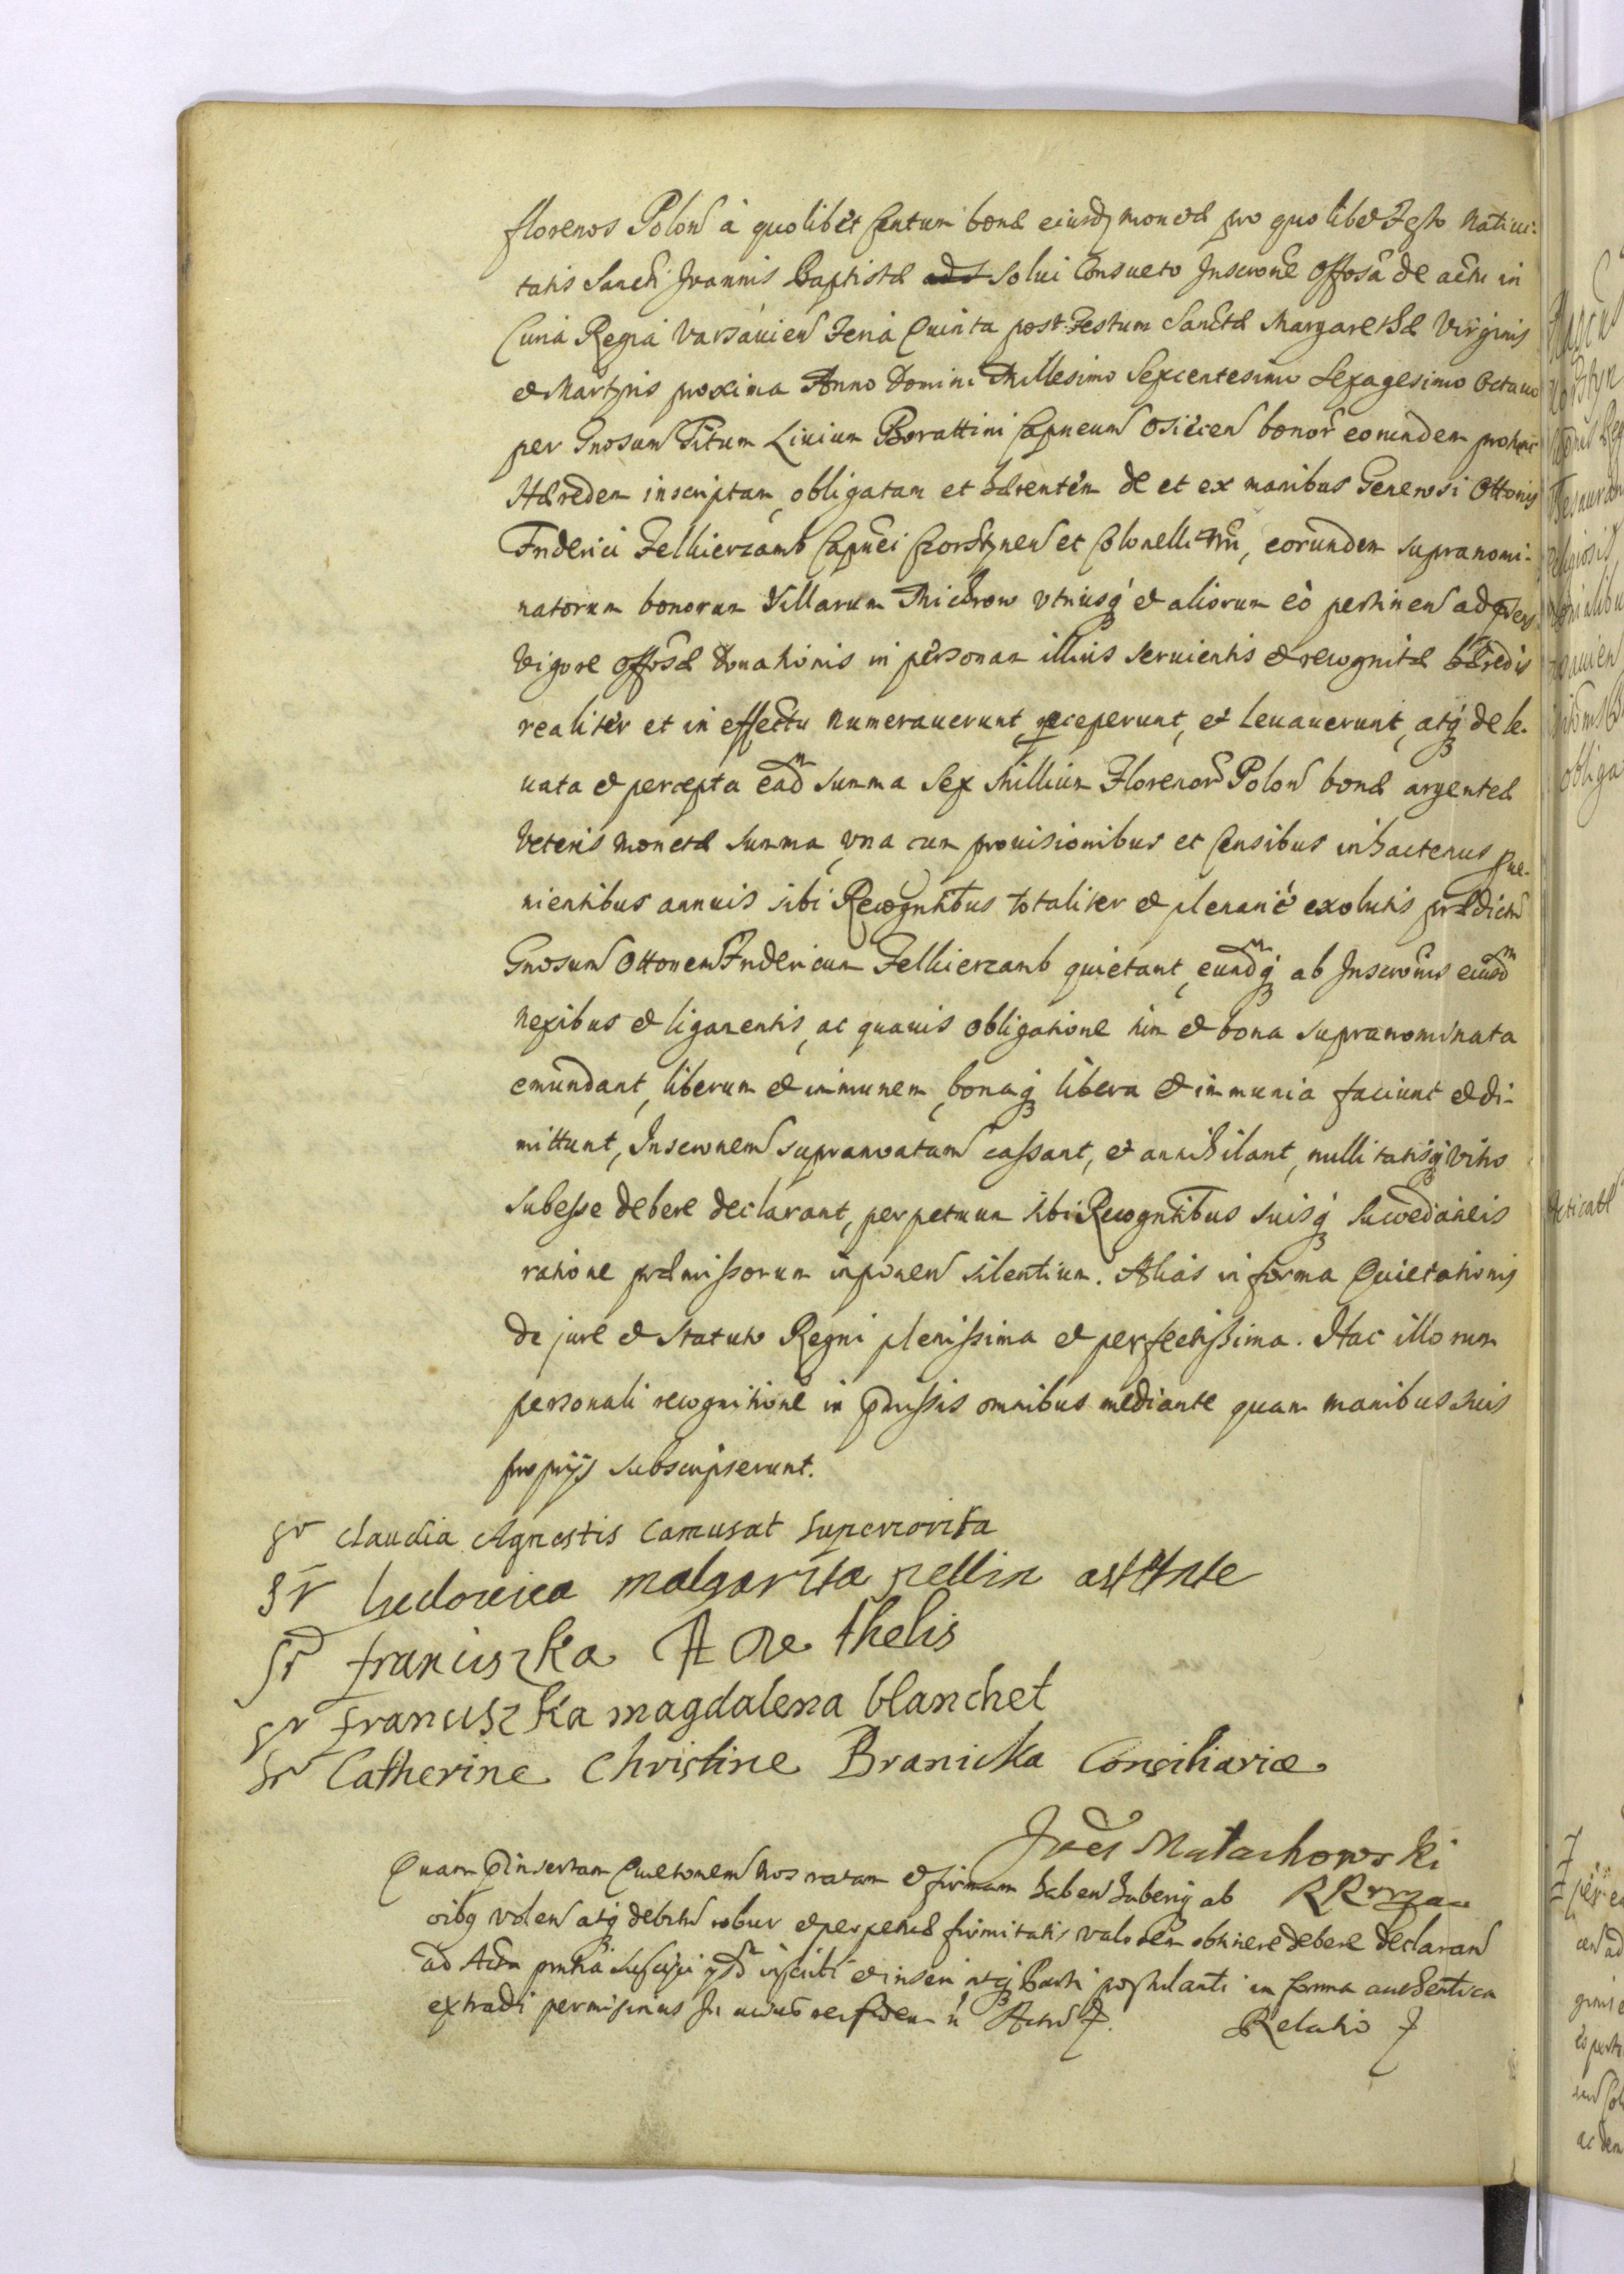 florenos Polon à quolibet Centum bonæ eiusdq monetæ pro quolibet Festo Natiui-
tatis Sancti Joannis Baptistæ solui Consueto Inscrone Offosa de actu in
Curia Regia Varsauien Feria Quinta post Festum Sanctæ Margarethæ Virginis
et Martyris proxima Anno Domini Millesimo Sexcentesimo Sexagesimo Octauo
per Gnosum Titum Liuium Borattini Capneum Osiecen bonor eorundem prohunc
Hæredem inscriptam, obligatam et hærentem de et ex manibus Generosi Ottonis
Friderici Felkierzamb Capnei Czorstynen et Colonelli, eorundem supranomi-
natorum bonorum Villarum Michrow vtriusq et aliorum eò pertinen ad præns
Vigore Offosæ Donationis in personam illius seruientis et recognitæ hæredis
realiter et in effectu numerauerunt, perceperunt, et leuauerunt, atq de le-
uata et percepta eadm summa Sex Millium Florenor Polon bonæ argenteæ
Veteris monetæ summa, vna cum prouisionibus et Censibus in hactenus proue-
nientibus annuis sibi Recogntibus totaliter et plenarie exolutis prædictum
Gnosum Ottonem Fridericum Felkierzamb quietant, eundmq ab Inscronis eiusdm
nexibus et ligamentis, ac quauis obligatione tum et bona supranominata
emundant, liberum et immunem, bonaq libera et immunia faciunt et di-
mittunt, Inscronem supranoatam cassant, et annihilant, nullitatisq vitio
subesse debere declarant, perpetuum sibi Recogntibus suisq succedaneis
ratione præmissorum imponen silentium. Alias in forma Quietationis
de jure et Statuto Regni plenissima et perfectissima. Hac illorum
personali recognitione in præmissis omnibus mediante quam manibus suis
proprijs subscripserunt.
Sr Claudia Agnestis Camusat Superiorita
Sr Ludowica malgarita pellin asistante
Sr franciszka A De thelis
Sr franciszka magdalena blanchet
Sr Catherine Christine Branicka Consiliariæ
Joes Małachowski
Quam præinsertam Quietonem Nos ratam et firmam haben haberiq ab
oibq volen atq debitum robur et perpetuæ firmitatis valorem obtinere debere declaran
ad Acta prntia suscipi inscribi et inseri atq Parti postulanti in forma authentica
extradi permisimus In cuius rei fidem Actum
Relatio